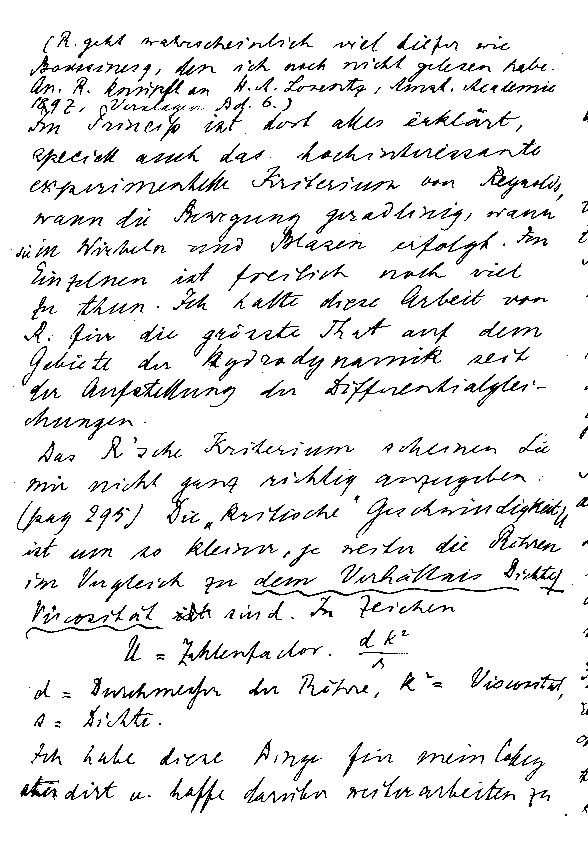 (R. geht wahrscheinlich viel tiefer wie
Boussinesq, den ich noch nicht gelesen habe.
An. R. knüpft an H. A. Lorentz, Amst. Academie
1897, Verslagen Bd. 6.)
Im Princip ist dort alles erklärt,
speciell auch das hochinteressante
experimentelle Kriterium von Reynolds,
wann die Bewegung geradlinig, wann
sie in Wirbeln und Blasen erfolgt. Im
Einzelnen ist freilich noch viel
zu thun. Ich halte diese Arbeit von
R. für die grösste That auf dem
Gebiete der Hydrodynamik seit
der Aufstellung der Differentialglei-
chungen.
Das R'sche Kriterium scheinen Sie
mir nicht ganz richtig anzugeben
(pag 295) Die „kritische" Geschwindigkeit U
ist um so kleiner, je weiter die Röhren
im Vergleich zu dem Verhältnis Dichte/
Viscosität sind. In Zeichen
U = Zahlenfactor. d k²/s
d = Durchmesser der Röhre, k² = Viscosität,
s = Dichte.
Ich habe diese Dinge für mein Colleg
studirt u. hoffe darüber weiterarbeiten zu